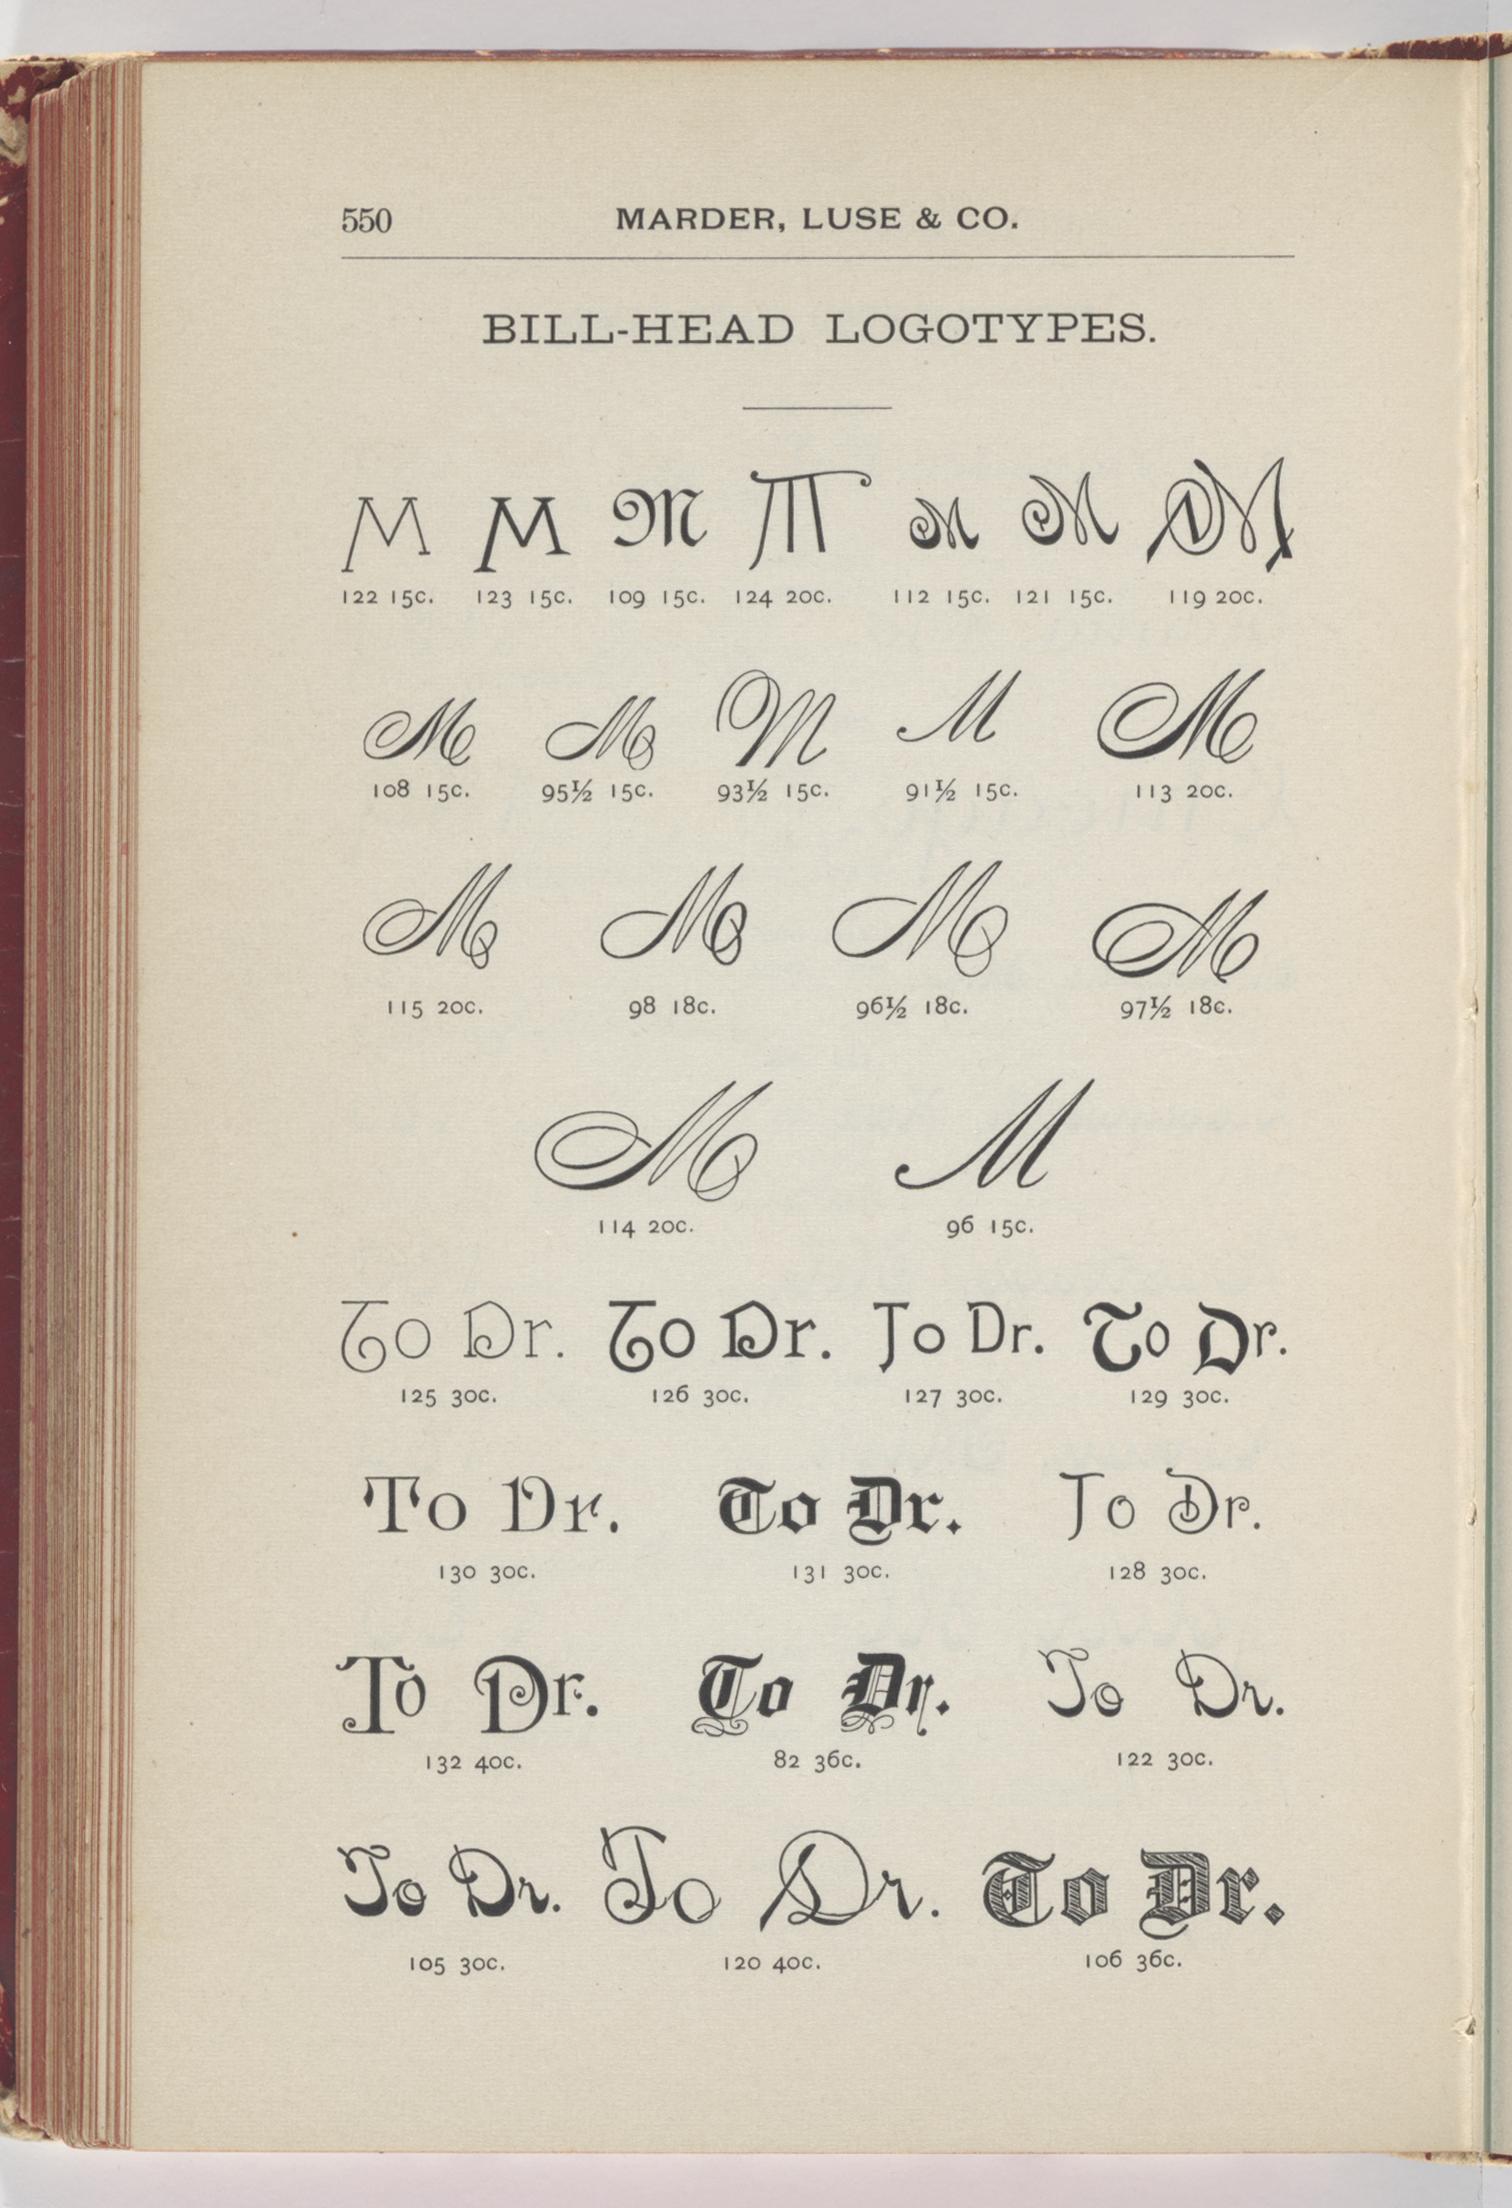 550 MARDER, LUSE & CO.
BILL-HEAD LOGOTYPES.
M M M M M M M
122 15c. 123 15c. 109 15c. 124 20c. 112 15c. 121 15c. 119 20c.
M M M M M
108 15c. 95½ 15c. 93½ 15c. 91½ 15c. 113 20c.
M M M M
115 20c. 98 18c. 96½ 18c. 97½ 18c.
M M
114 20c. 96 15c.
To Dr. To Dr. To Dr. To Dr.
125 30c. 126 30c. 127 30c. 129 30c.
To Dr. To Dr. To Dr.
130 30c. 131 30c. 128 30c.
To Dr. To Dr. To Dr.
132 40c. 82 36c. 122 30c.
To Dr. To Dr. To Dr.
105 30c. 120 40c. 106 36c.